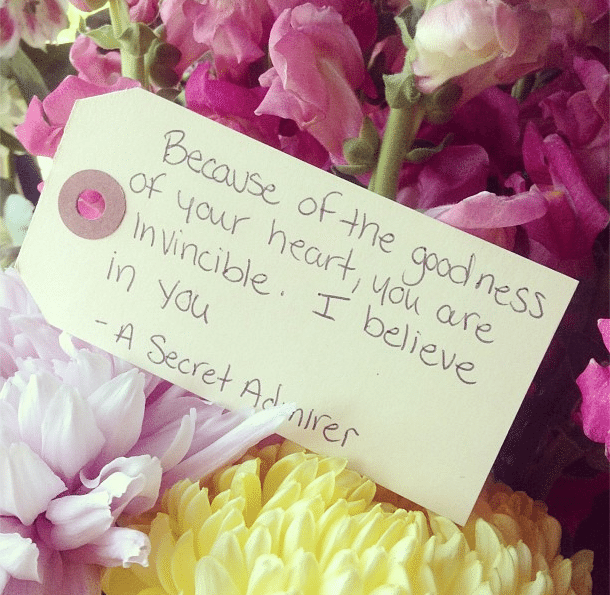 Because of the goodness
of your heart, you are
Invincible. I believe
in you
- A Secret Admirer